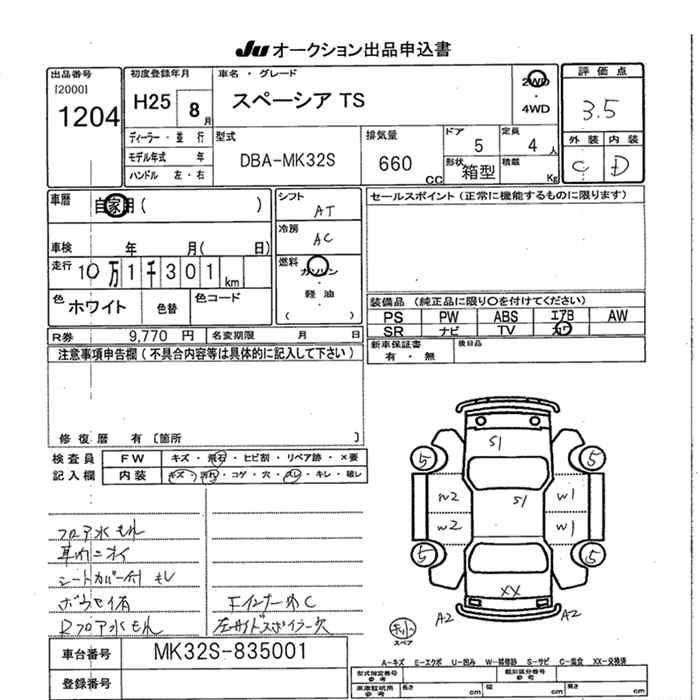 Ju オークション出品申込書
出品番号
[2000]
1204
初度登録年月
H25 8月
車名・グレード
スペーシア TS
2WD
・
4WD
評価点
3.5
外装 内装
C D
ディーラー・並行
モデル年式 年
ハンドル 左・右
型式
DBA-MK32S
排気量
660 CC
ドア
5
定員
4人
形状
箱型
積載
Kg
車歴
自家用( )
車検 年 月( 日)
走行 10万1千301km
色 ホワイト
色替
色コード
シフト
AT
冷房
AC
燃料
ガソリン
・
軽油
( )
セールスポイント(正常に機能するものに限ります)
装備品(純正品に限り○を付けてください)
PS PW ABS エアB AW
SR ナビ TV カワ
新車保証書
有・無
後日品
R券 9,770円
名変期限 月 日
注意事項申告欄(不具合内容等は具体的に記入して下さい)
修復歴 有〔箇所 〕
検査員
記入欄
FW キズ・飛石・ヒビ割・リペア跡・×要
内装 キズ・汚れ・コゲ・穴・スレ・キレ・破レ
フロア水もれ
シートカバー付
Rフロア水もれ
S1
S1
W2
W2
W1
W1
XX
5
5
5
5
A2
A2
スペア
車台番号 MK32S-835001
登録番号
A-キズ E-エクボ U-凹み W-補修跡 S-サビ C-腐食 XX-交換済
型式指定番号
参考
類別区分番号
参考
車庫証明用
参考
長さ cm
幅 cm
高さ cm